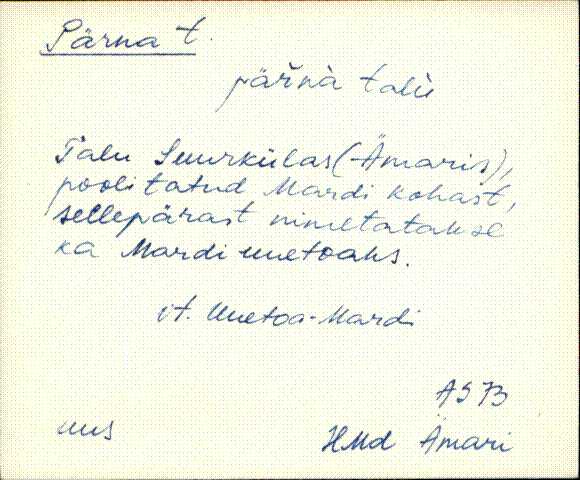 Pärna t.
pär̀nà talù
Talu Suurkülas (-Ämaris),
poolitatud Mardi kohast,
sellepärast nimetatakse
ka Mardi uuetoaks.
it. Uuetoa-Mardi
AS 73
uus
HMd Ämari